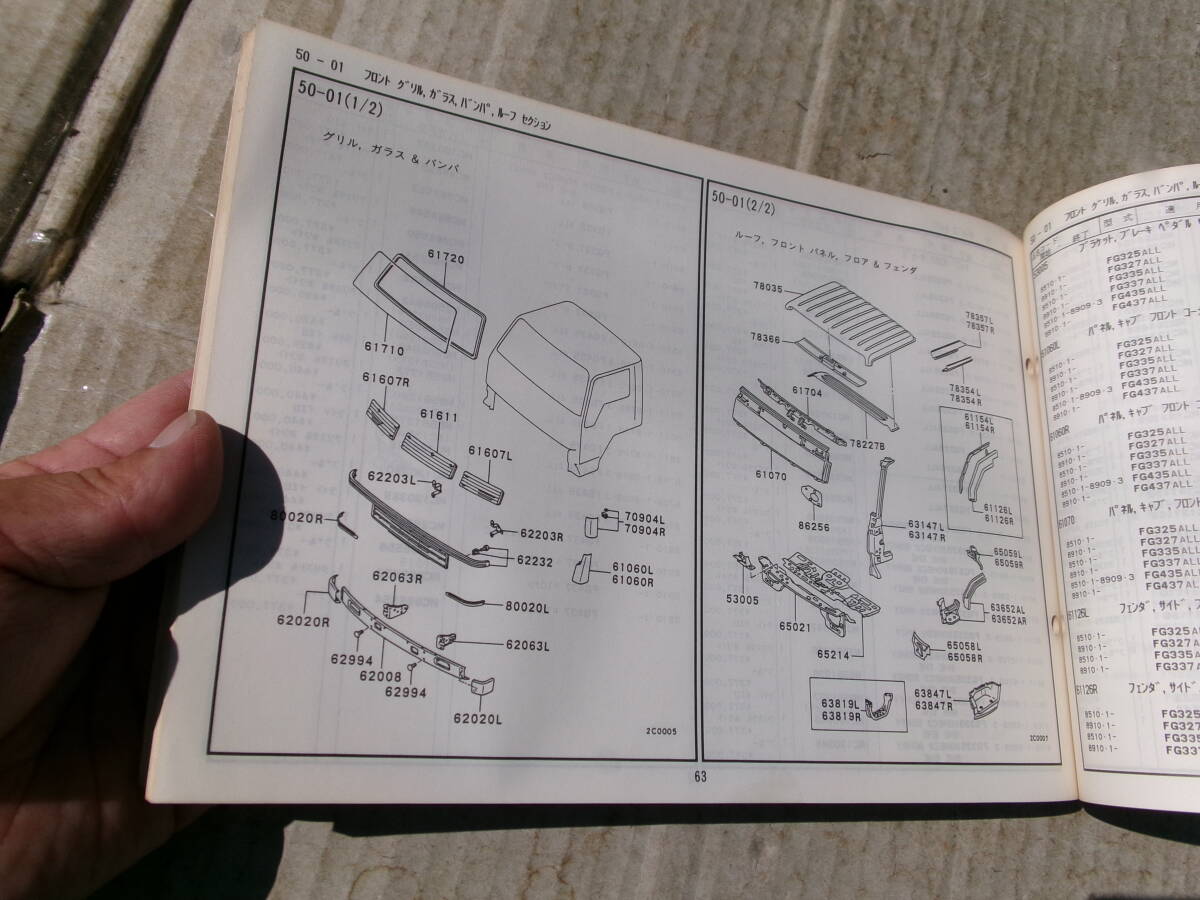 50 - 01 フロント グリル,ガラス,バンパ,ルーフ セクション
50-01(1/2)
グリル, ガラス & バンパ
61720
61710
61607R
61611
61607L
62203L
80020R
62203R
62232
70904L
70904R
61060L
61060R
62063R
80020L
62020R
62063L
62994
62008
62994
62020L
2C0005
50-01(2/2)
ルーフ, フロント パネル, フロア & フェンダ
78035
78357L
78357R
78366
78354L
78354R
61704
61154L
61154R
78227B
61070
86256
61126L
61126R
63147L
63147R
65059L
65059R
53005
65021
63652AL
63652AR
65214
65058L
65058R
63819L
63819R
63847L
63847R
2C0007
63
50 - 01 フロント グリル,ガラス,バンパ,ル
終了 型式 適 用
53005 ブラケット,ブレーキ ペダル
8510·1- FG325ALL
8910·1- FG327ALL
8510·1- FG335ALL
8910·1- FG337ALL
8510·1-8909·3 FG435ALL
8910·1- FG437ALL
61060L パネル,キャブ フロント コー
8510·1- FG325ALL
8910·1- FG327ALL
8510·1- FG335ALL
8910·1- FG337ALL
8510·1-8909·3 FG435ALL
8910·1- FG437ALL
61060R パネル,キャブ フロント
8510·1- FG325ALL
8910·1- FG327ALL
8510·1- FG335ALL
8910·1- FG337ALL
8510·1-8909·3 FG435ALL
8910·1- FG437ALL
61070 パネル,キャブ フロント
8510·1- FG325ALL
8910·1- FG327ALL
8510·1- FG335ALL
8910·1- FG337ALL
8510·1-8909·3 FG435ALL
8910·1- FG437ALL
61126L フェンダ,サイド
8510·1- FG325ALL
8910·1- FG327ALL
8510·1- FG335AL
8910·1- FG337ALL
61126R フェンダ,サイド
8510·1- FG325
8910·1- FG327
8510·1- FG335
8910·1- FG33